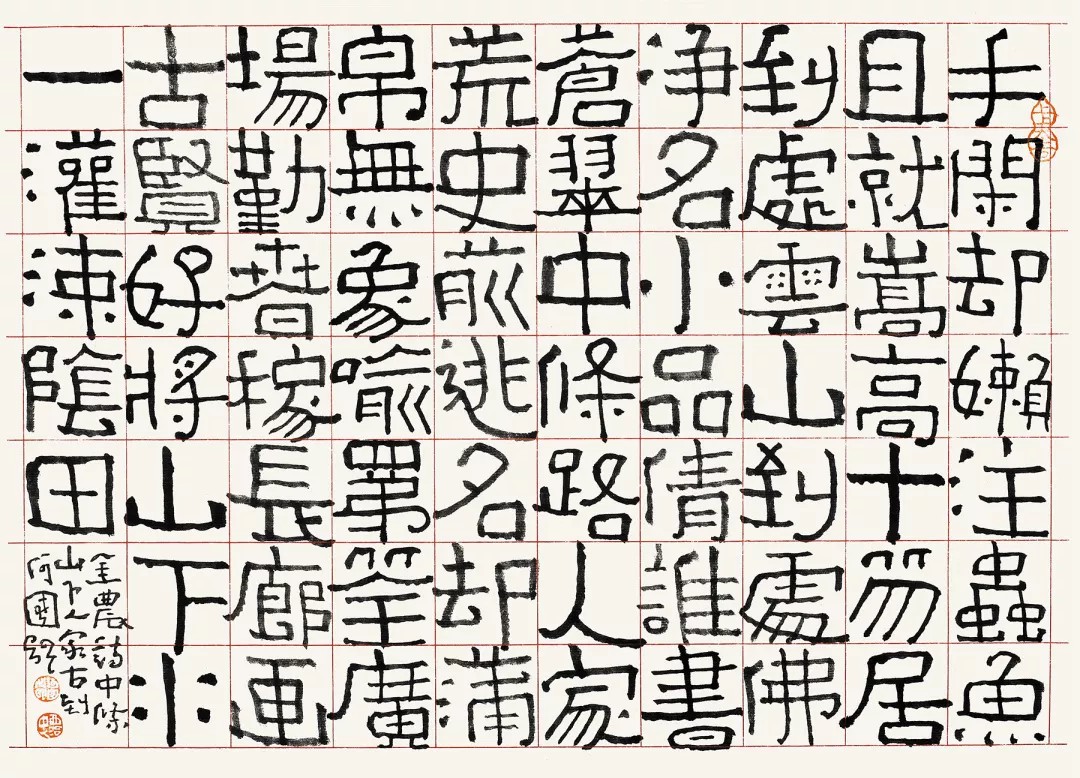 手閑却懶注蟲魚
且就嵩高十笏居
到處雲山到處佛
净名小品倩誰書
蒼翠中條路人家
荒史前逃名却蒲
帛無象喻罤筌廣
場勤春稼長廊画
古賢好將山下水
一灌涑陰田
金農詩中條
山下人家古